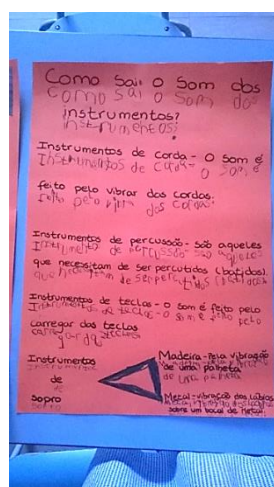 Como sai o som dos
como sai o som dos
instrumentos?
instrumentos?
Instrumentos de corda - O som é
Instrumentos de corda - o som é
feito pelo vibrar das cordas.
feito pelo vibra das cordas.
Instrumentos de percussão - são aqueles
Instrumentos de percussão - são aqueles
que necessitam de ser percutidos (batidos).
que necessitam de ser percutidos (batidos
Instrumentos de teclas - o som é feito pelo
Instrumentos de teclas - o som é feito pelo
carregar das teclas
carregar das teclas
Instrumentos
Instrumentos
de
de
sopro
sopro
Madeira - Pela vibração
de uma palheta
de uma palheta
Metal - vibração dos lábios
sobre um bocal de metal.